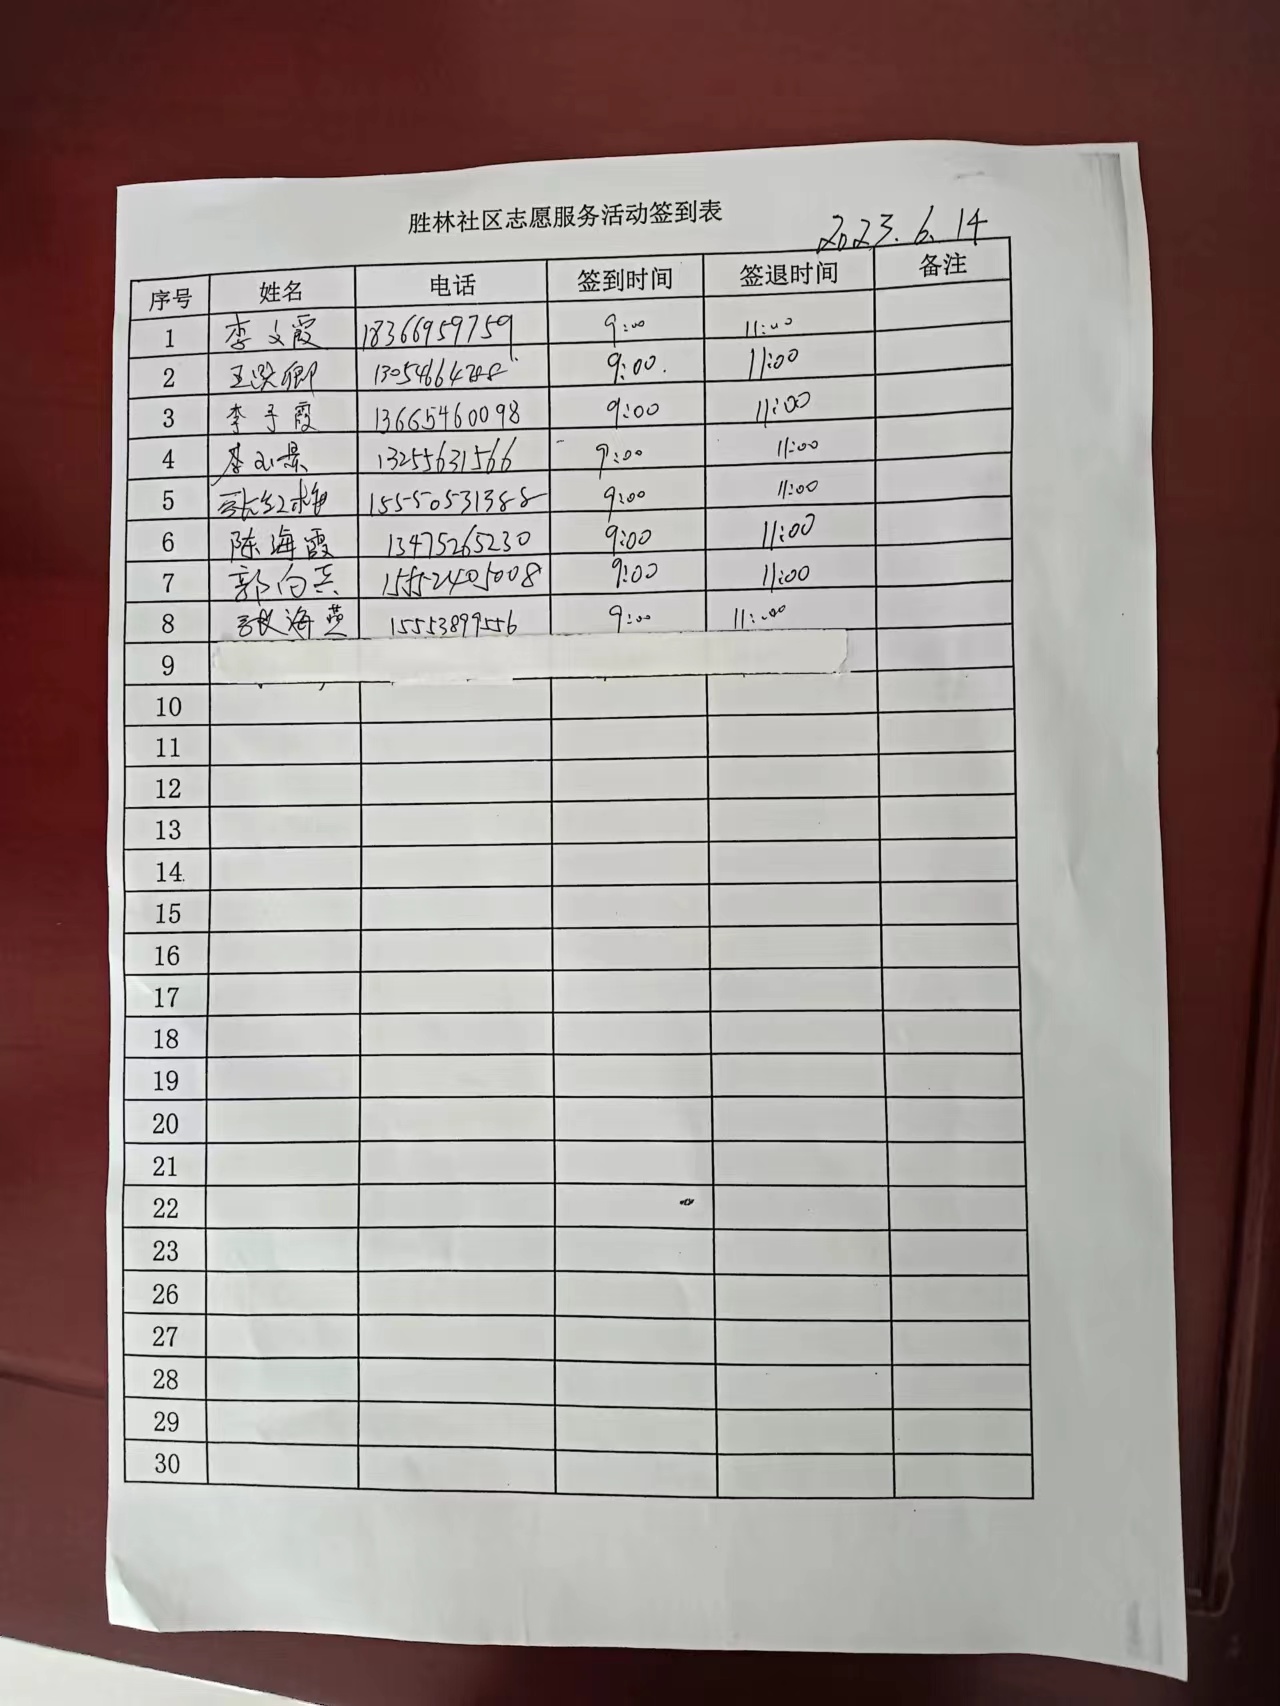 胜林社区志愿服务活动签到表
2023.6.14
序号 姓名 电话 签到时间 签退时间 备注
1 李文霞 18366959759 9:00 11:00
2 13054664288 9:00. 11:00
3 李子霞 13665460098 9:00 11:00
4 李 景 13255631566 9:00 11:00
5 张红梅 15550531388 9:00 11:00
6 陈海霞 13475265230 9:00 11:00
7 郭向兵 15552405008 9:00 11:00
8 张海燕 15553899556 9:00 11:00
9
10
11
12
13
14
15
16
17
18
19
20
21
22
23
26
27
28
29
30